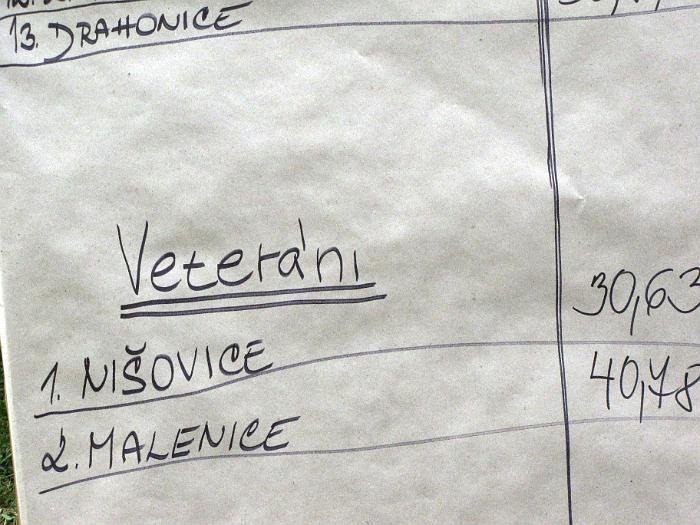 13. DRAHONICE
Veteráni
1. NIŠOVICE 30,63
2. MALENICE 40,78